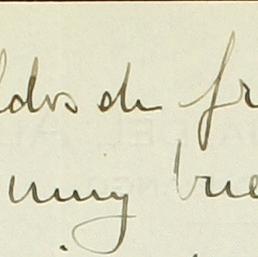 ldos de fr
muy bue